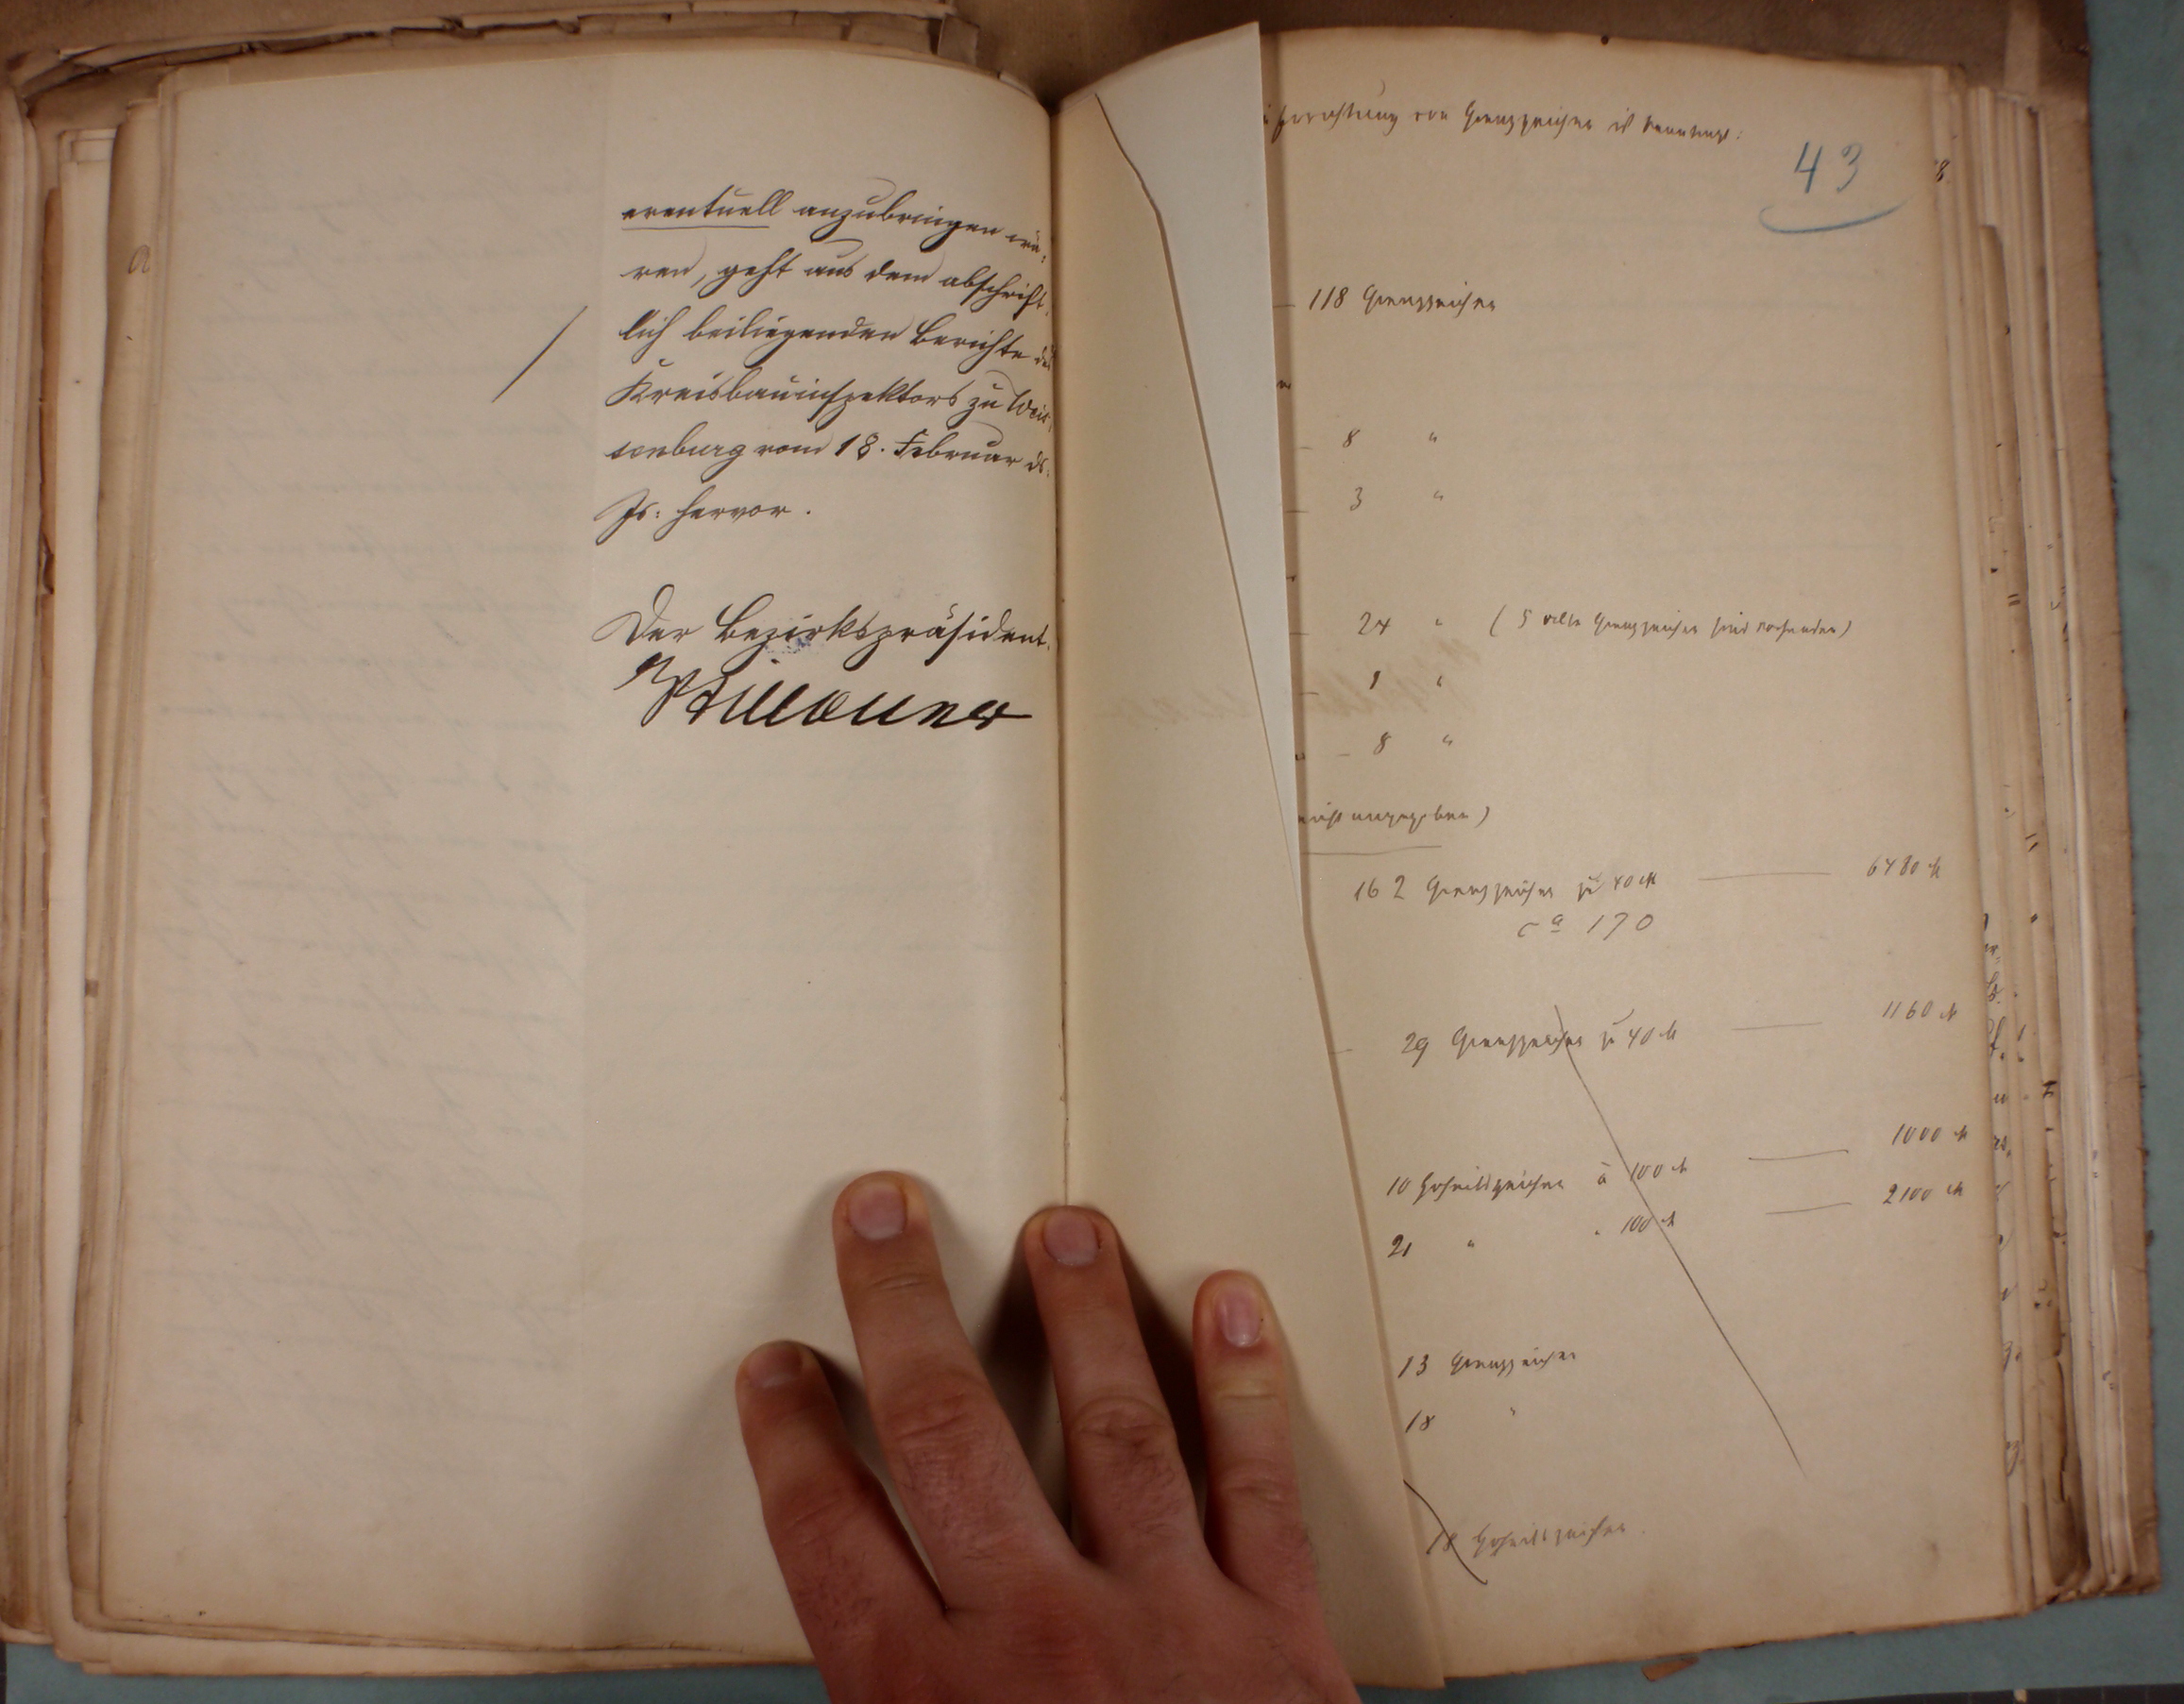 eventuell anzubringen wä-
ren, geht aus dem abschrift-
lich beiliegenden Berichte des
Kreisbauinspektors zu Weis-
senburg vom 18. Februar ds.
Js. hervor.
Der Bezirkspräsident.
von Grenzzeichen ist beantragt:
43
118 Grenzzeichen
8 "
3 "
24 " (5 alte Grenzzeichen sind vorhanden)
1 "
8 "
nicht angegeben)
162 Grenzzeichen zu 40 M 6480 M
ca 170
29 Grenzzeichen zu 40 M 1160 M
10 Hoheitszeichen à 100 M 1000 M
21 " " 100 M 2100 M
13 Grenzzeichen
18 "
18 Hoheitszeichen.